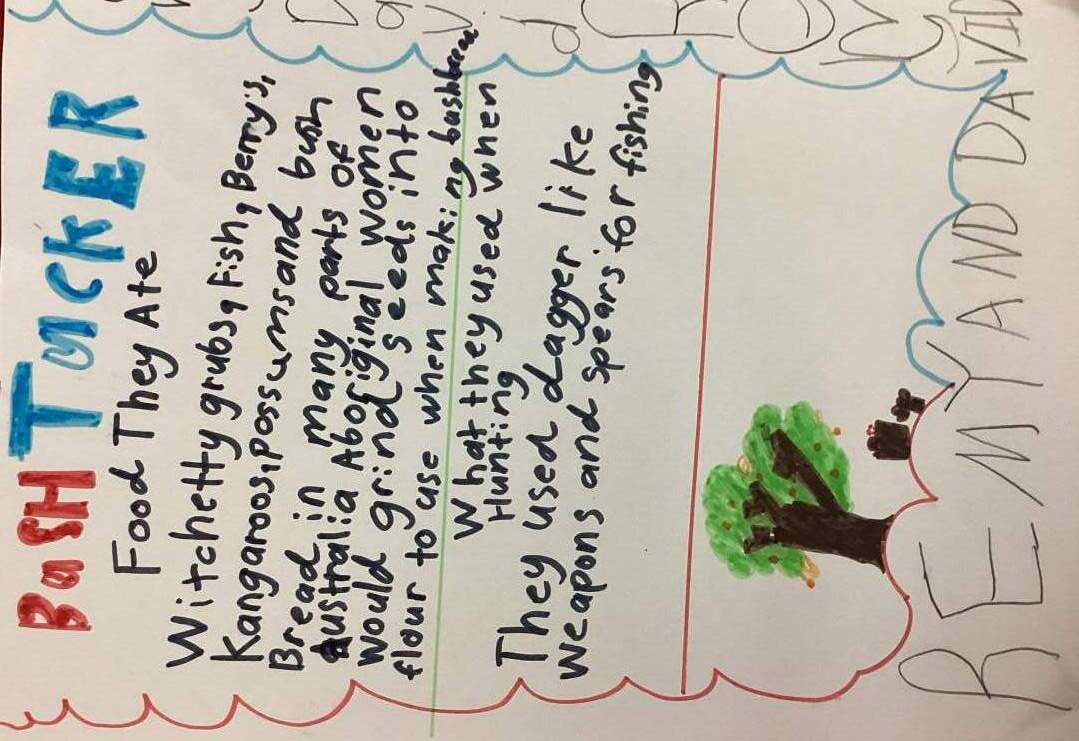 BuSH TuCKER
Food They Ate
Witchetty grubs, Fish, Berry's,
Kangaroos, possumsand bush
Bread in many parts of
Australia Aboriginal women
Would grind seeds into
flour to use when making bushbread
What they used when
Hunting
They used dagger like
weapons and spears for fishing
REMY AND DAVID